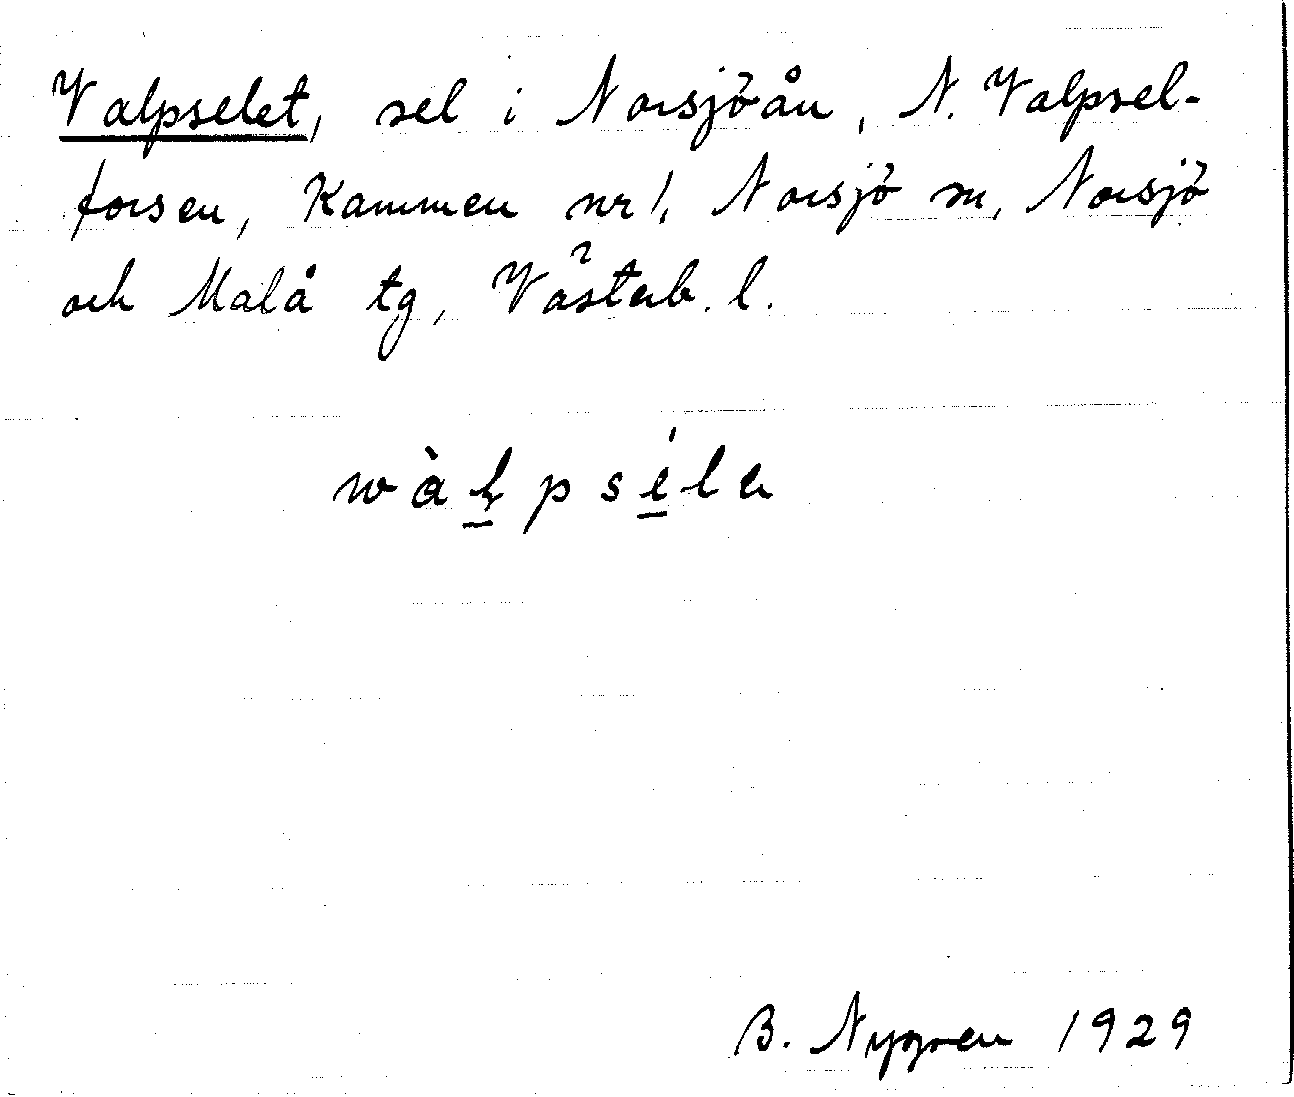 Valpselet, sel i Norsjöån, N. Valpsel-
forsen, Kammen nr 1, Norsjö sn, Norsjö
och Malå tg, Västerb. l.
wàḻpsé̱la
B. Nygren 1929